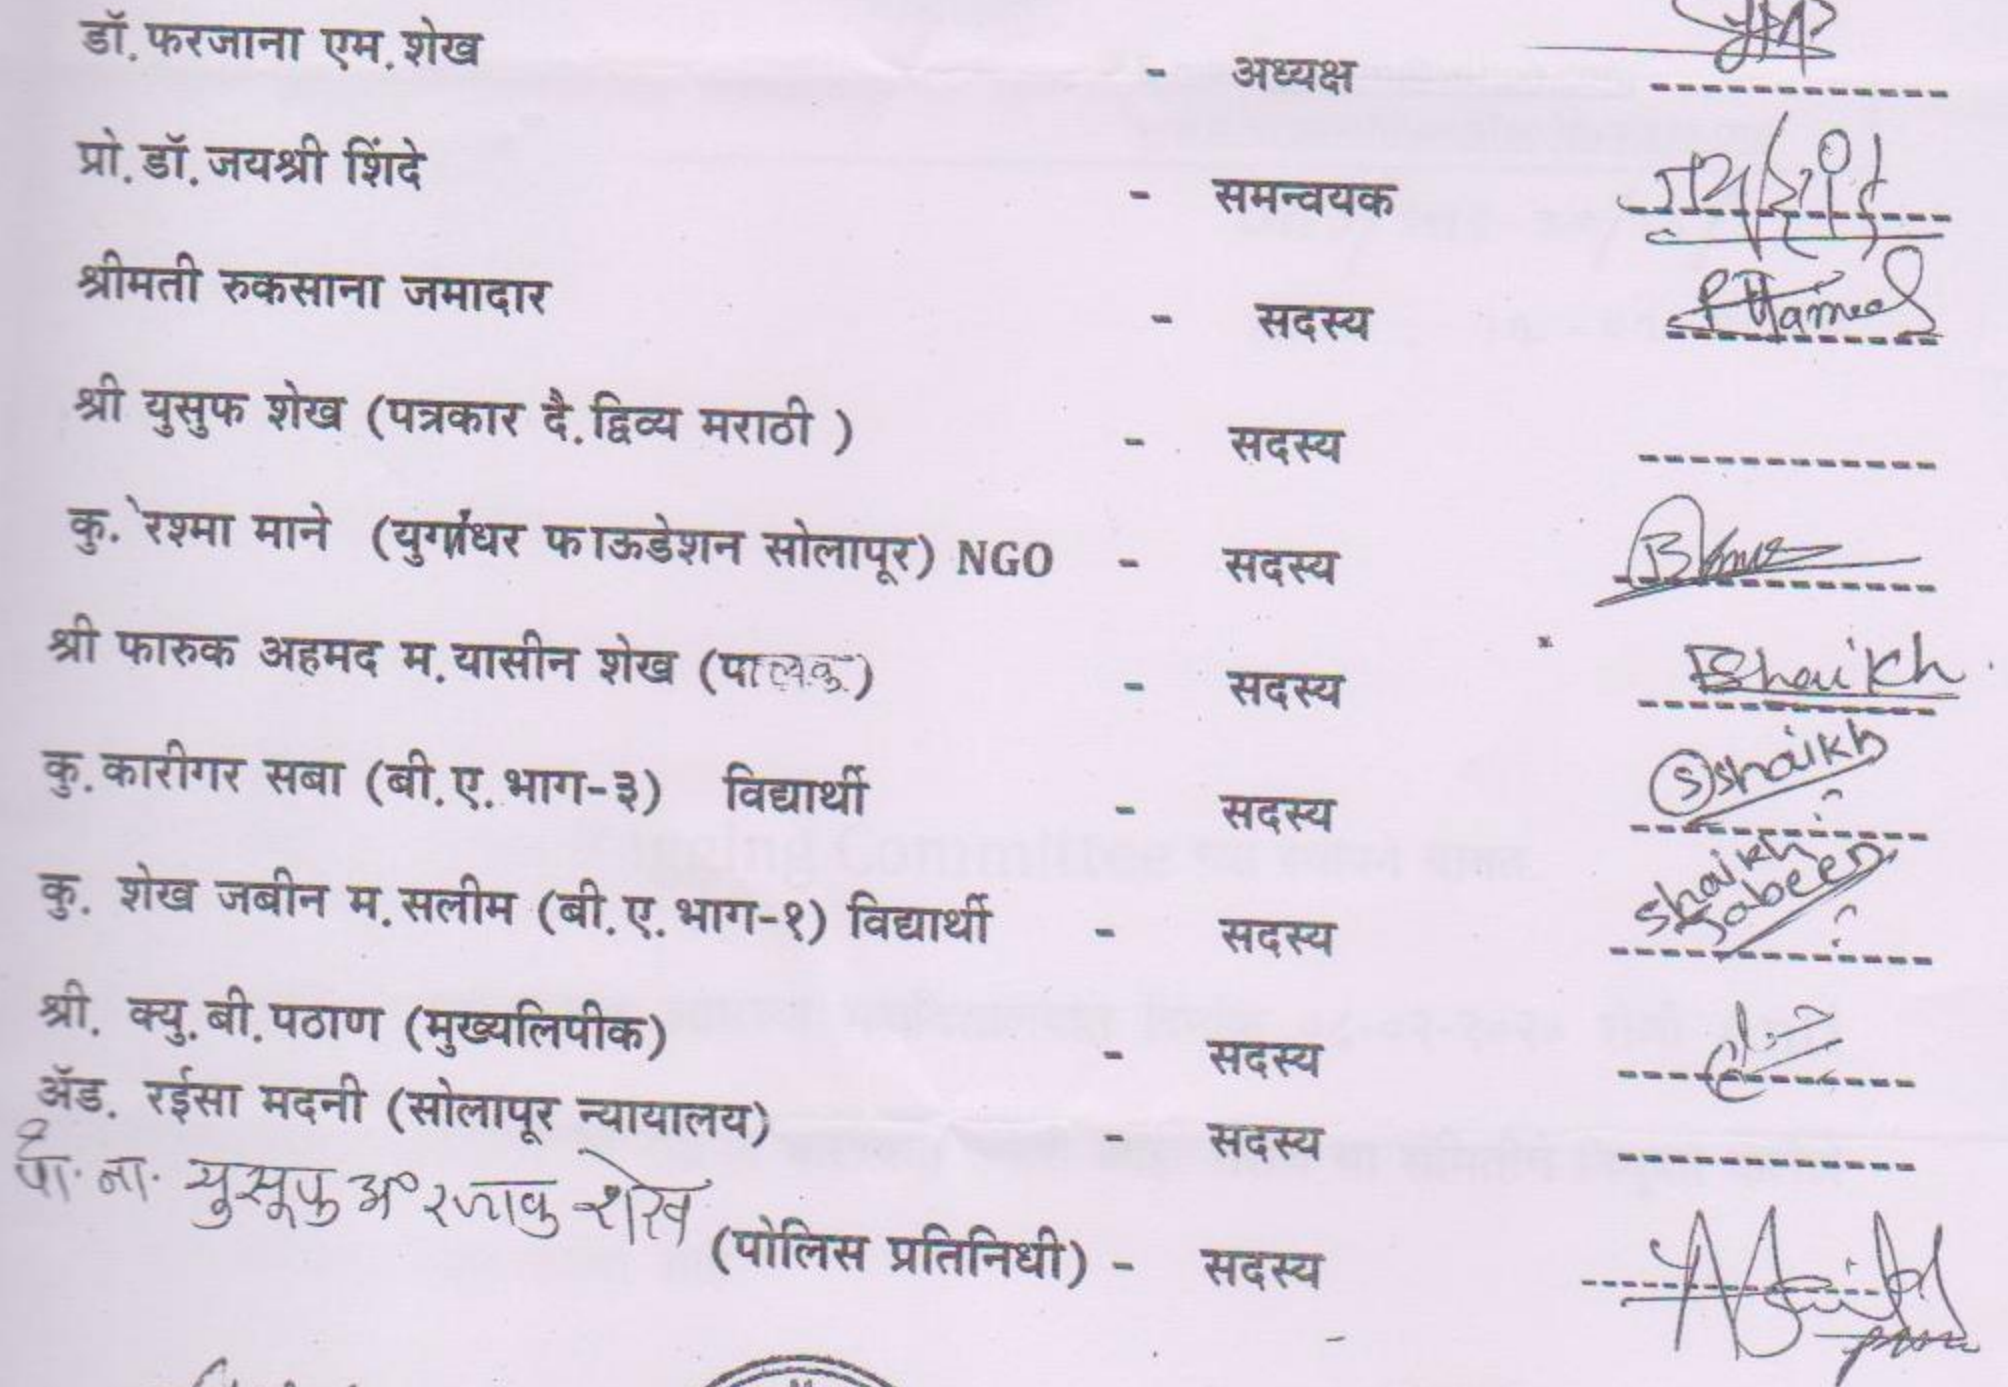 डॉ. फरजाना एम. शेख - अध्यक्ष
प्रो. डॉ. जयश्री शिंदे - समन्वयक
श्रीमती रुकसाना जमादार - सदस्य
श्री युसुफ शेख (पत्रकार दै. द्विव्य मराठी ) - सदस्य ------------
कु. रेश्मा माने (युगांधर फाऊडेशन सोलापूर) NGO - सदस्य
श्री फारुक अहमद म. यासीन शेख (पालक) - सदस्य Shaikh
कु. कारीगर सबा (बी. ए. भाग-३) विद्यार्थी - सदस्य (S) Shaikh
कु. शेख जबीन म. सलीम (बी. ए. भाग-१) विद्यार्थी - सदस्य Shaikh Jabeen
श्री. क्यु. बी. पठाण (मुख्यलिपीक) - सदस्य
ॲड. रईसा मदनी (सोलापूर न्यायालय) - सदस्य ------------
पो. ना. युसूफ अ० रजाक शेख (पोलिस प्रतिनिधी) - सदस्य